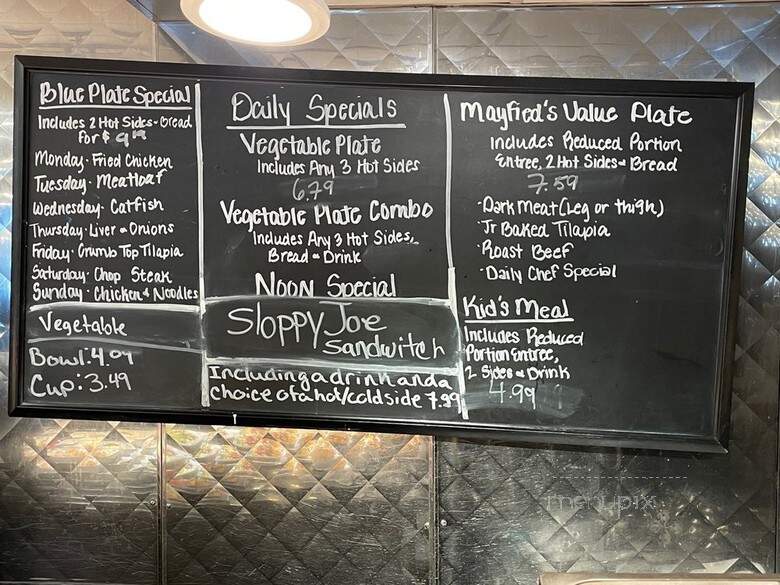 Blue Plate Special
Includes 2 Hot Sides - Bread
For $ 9.19
Monday · Fried Chicken
Tuesday · Meatloaf
Wednesday · Catfish
Thursday · Liver & Onions
Friday · Crumb Top Tilapia
Saturday · Chop Steak
Sunday · Chicken & Noodles
Vegetable
Bowl: 4.09
Cup: 3.49
Daily Specials
Vegetable Plate
Includes Any 3 Hot Sides
6.79
Vegetable Plate Combo
Includes Any 3 Hot Sides,
Bread & Drink
Noon Special
Sloppy Joe
Sandwitch
Including a drink and a
choice of a hot/cold side 7.99
Mayfied's Value Plate
Includes Reduced Portion
Entree, 2 Hot Sides & Bread
7.59
· Dark Meat (Leg or thigh)
· Jr Baked Tilapia
· Roast Beef
· Daily Chef Special
Kid's Meal
Includes Reduced
Portion Entree,
2 Sides & Drink
4.99
menupix